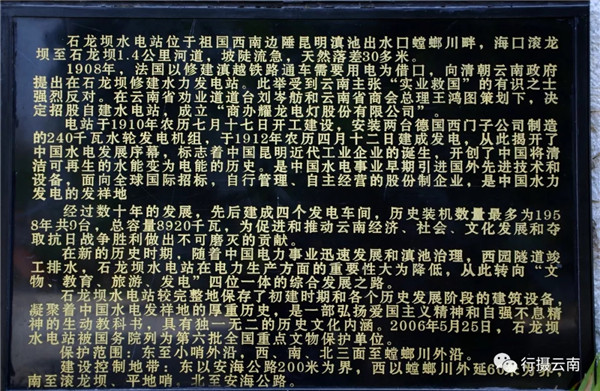 石龙坝水电站位于祖国西南边陲昆明滇池出水口螳螂川畔，海口滚龙
坝至石龙坝1.4公里河道，坡陡流急，天然落差30多米。
1908年，法国以修建滇越铁路通车需要用电为借口，向清朝云南政府
提出在石龙坝修建水力发电站。此举受到云南主张“实业救国”的有识之士
强烈反对。在云南省劝业道道台刘岑舫和云南省商会总理王鸿图策划下，决
定招股自建水电站，成立“商办耀龙电灯股份有限公司”。
电站于1910年农历七月十七日开工建设，安装两台德国西门子公司制造
的240千瓦水轮发电机组，于1912年农历四月十二日建成发电，从此揭开了
中国水电发展序幕，标志着中国昆明近代工业企业的诞生，开创了中国将清
洁可再生的水能变为电能的历史。是中国水电事业早期引进国外先进技术和
设备，面向全球国际招标，自行管理、自主经营的股份制企业，是中国水力
发电的发祥地
经过数十年的发展，先后建成四个发电车间，历史装机数量最多为195
8年共9台，总容量8920千瓦，为促进和推动云南经济、社会、文化发展和夺
取抗日战争胜利做出不可磨灭的贡献。
在新的历史时期，随着中国电力事业迅速发展和滇池治理，西园隧道竣
工排水，石龙坝水电站在电力生产方面的重要性大为降低，从此转向“文
物、教育、旅游、发电”四位一体的综合发展之路。
石龙坝水电站较完整地保存了初建时期和各个历史发展阶段的建筑设备，
凝聚着中国水电发祥地的厚重历史，是一部弘扬爱国主义精神和自强不息精
神的生动教科书，具有独一无二的历史文化内涵。2006年5月25日，石龙坝
水电站被国务院列为第六批全国重点文物保护单位。
保护范围：东至小哨外沿，西、南、北三面至螳螂川外沿。
建设控制地带：东以安海公路200米为界，西以螳螂川外延60米为界，
南至滚龙坝、平地哨，北至安海公路。
行摄云南